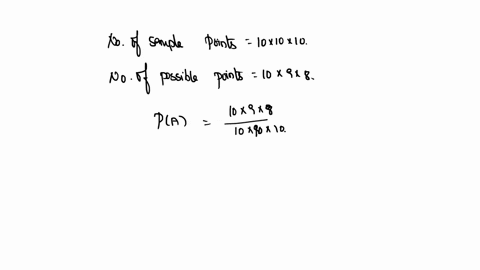 No. of sample points = 10 x 10 x 10.
No. of possible points = 10 x 9 x 8.
P(A) = 10 x 9 x 8
10 x 10 x 10.